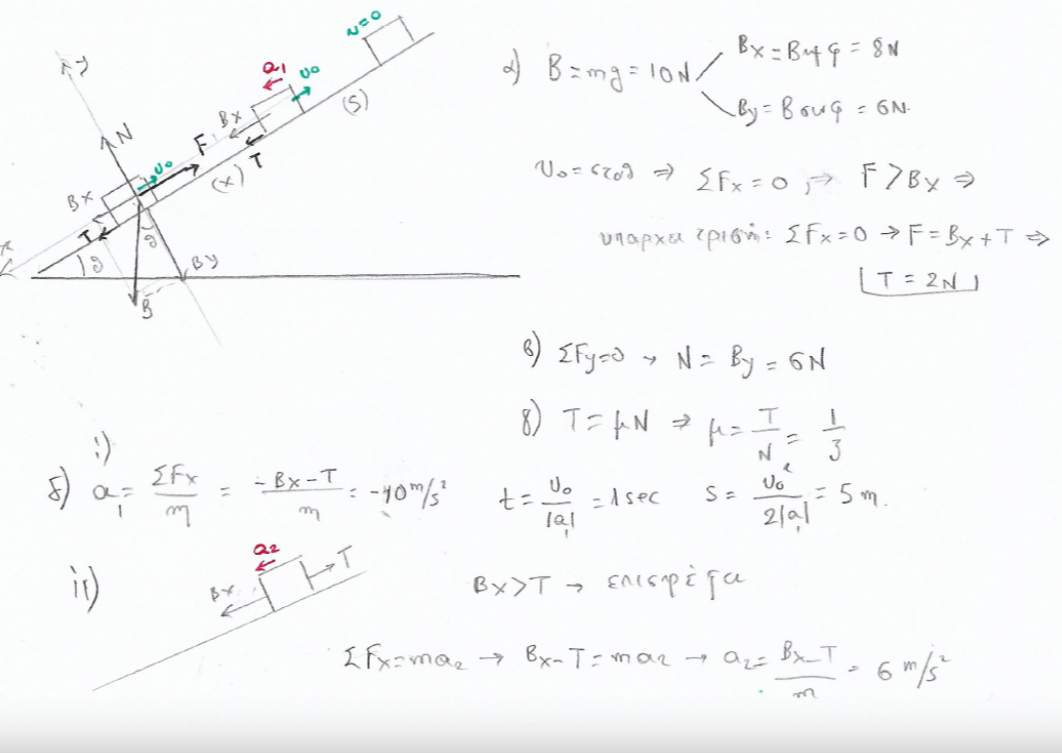 y
N
υ=0
a₁
υ₀
(S)
Bx
F
T
υ₀
(x)
Bx
T
x
φ
φ
By
B
α) B=mg=10N
Bx=Bημφ=8N
By=Bσυνφ=6N
υ₀=σταθ ⇒ ΣFx=0, ⇒ F>Bx ⇒
υπαρχει τριβή: ΣFx=0 → F=Bx+T ⇒
T=2N
β) ΣFy=0 → N=By=6N
γ) T=μN ⇒ μ=T/N=1/3
δ) i) a₁=ΣFx/m=-Bx-T/m=-10m/s² t=υ₀/|a₁|=1sec S=υ₀²/2|a₁|=5m.
ii)
a₂
T
Bx
Bx>T → επιστρέφει
ΣFx=ma₂ → Bx-T=ma₂ → a₂=Bx-T/m=6m/s²